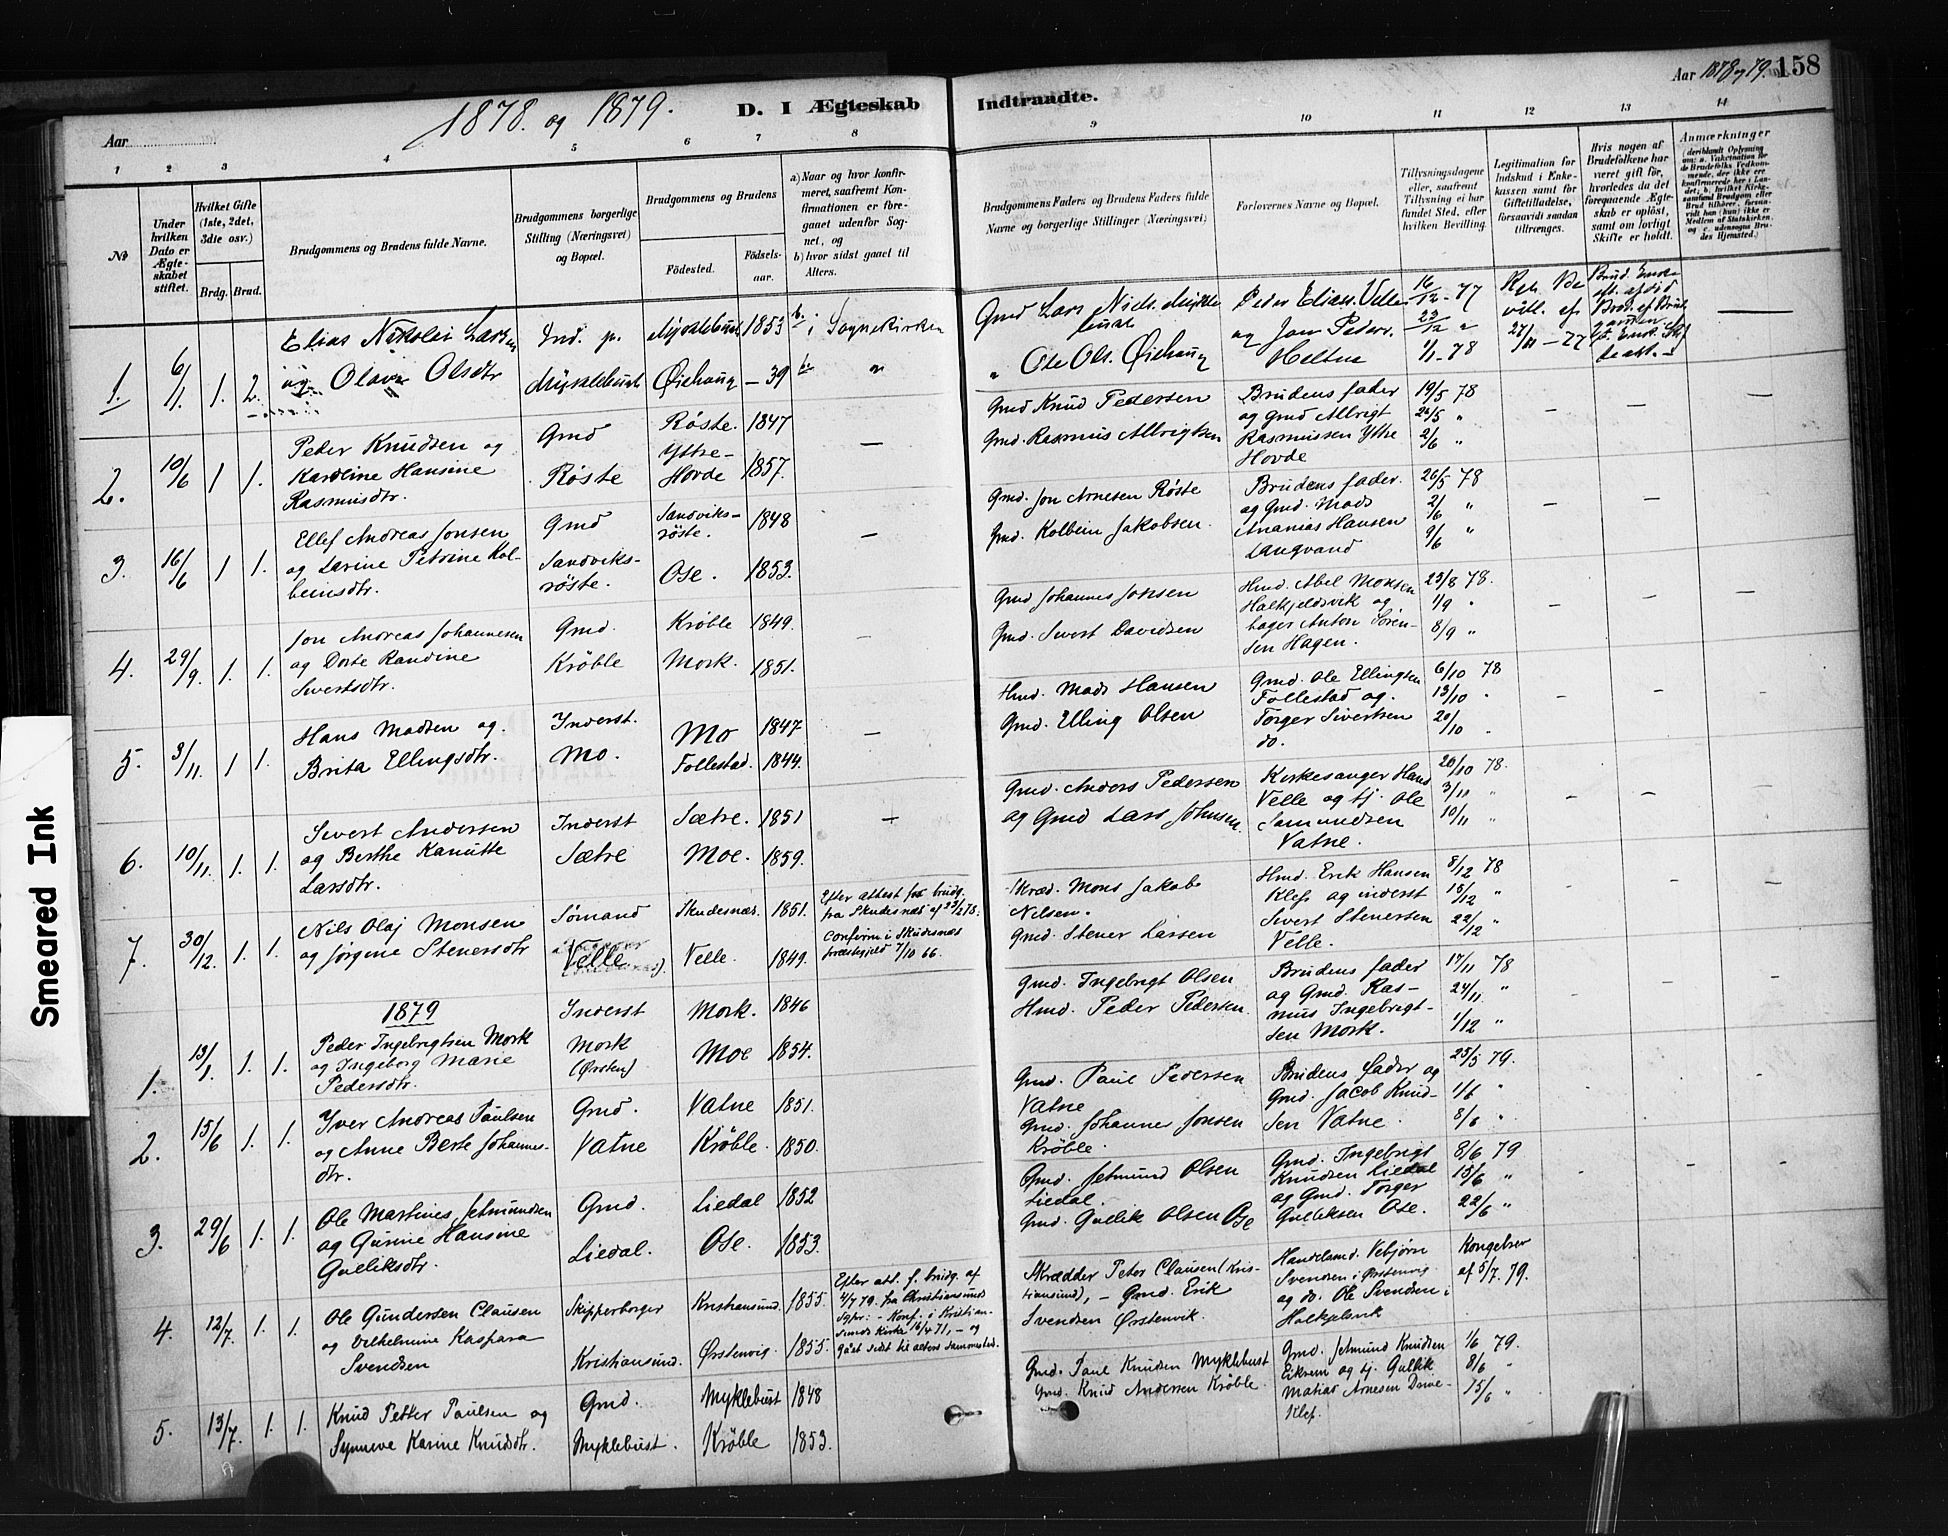 Aar 1878 og 79. 158
1878. og 1879.
D. I Ægteskab Indtraadte.
Aar
1 2 3 4 5 6 7 8 9 10 11 12 13 14
No
Under hvilken Dato er Ægteskabet stiftet.
Hvilket Gifte (1ste, 2det, 3die osv.)
Brdg. Brud.
Brudgommens og Brudens fulde Navne.
Brudgommens borgerlige Stilling (Næringsvei) og Bopæl.
Brudgommens og Brudens
Fødested. Fødselsaar.
a) Naar og hvor konfirmeret, saafremt Konfirmationen er foregaaet udenfor Sognet, og
b) hvor sidst gaaet til Alters.
Brudgommens Faders og Brudens Faders fulde Navne og borgerlige Stillinger (Næringsvei)
Forlovernes Navne og Bopæl.
Tillysningsdagene eller, saafremt Tillysning ei har fundet Sted, efter hvilken Bevilling.
Legitimation for Indskud i Enkekassen samt for Giftetilladelse, forsaavidt saadan tiltrænges.
Hvis nogen af Brudefolkene har været gift før, hvorledes da det foregaaende Ægteskab er opløst, samt om lovligt Skifte er holdt.
Anmærkninger
1. 6/1. 1. 2. Elias Nikolai Larsen
og Olava Olsdtr
Ind. p.
Myklebust
Myklebust 1853
Øiehaug – 39
b. i Sognekirken
b. "
Gmd Lars Niels. Myklebust
" Ole Ols. Øiehaug
Peder Elias. Velle
og Jon Peders. Heltne
16/12 - 77
23/12 "
1/1 - 78
2. 10/6 1 1. Peder Knudsen og
Karoline Hansine
Rasmusdtr.
Gmd
Røste
Røste. 1847
Yttre-Hovde 1857.
—
Gmd Knud Pedersen
Gmd. Rasmus Albrigtsen
Brudens fader
og Gmd Albrigt
Rasmussen Ytre
Hovde
19/5 78
26/5 "
2/6 "
3. 16/6 1 1. Ellef Andreas Jonsen
og Larine Petrine Kolbeinsdtr.
Gmd
Sandviksrøste.
Sandviksrøste. 1848
Ose. 1853.
—
Gmd. Jon Arnesen Røste
Gmd. Kolbein Jakobsen.
Brudens fader.
og Gmd. Mads
Ananias Hansen
Langvand
26/5 78
2/6 "
9/6 "
4. 29/9. 1. 1. Jon Andreas Johannesen
og Dorte Randine
Sivertsdtr.
Gmd.
Krøble
Krøble 1849.
Mork. 1851.
—
Gmd Johannes Jonsen
Gmd. Sivert Davidsen
Hmd. Abel Monsen
Halkjeldsvik og
bager Anton Sørensen Hagen.
23/8 78.
1/9 "
8/9 "
5. 3/11. 1 1. Hans Madsen og
Brita Ellingsdtr.
Inderst.
Mo.
Mo 1847
Follestad. 1844.
—
Hmd. Mads Hansen
Gmd. Elling Olsen
Gmd. Ole Ellingsen
Follestad og
Torger Sivertsen
do.
6/10 78
13/10 "
20/10 "
6. 10/11. 1. 1. Sivert Andersen
og Berthe Kanutte
Larsdtr.
Inderst
Sætre
Sætre. 1851
Moe. 1859.
—
Gmd. Anders Pedersen
og Gmd Lars Johnsen.
Kirkesanger Hans
Velle og tj. Ole
Samundsen
Vatne.
20/10 78.
3/11 "
10/11 "
7. 30/12. 1. 1. Nils Olaj Monsen
og Jørgine Stenersdtr
Sømand
Velle
Skudesnæs. 1851.
Velle. 1849.
Efter attest for brudg.
fra Skudesnæs af 23/2 78.
Confirm i Skudesnæs
præstegjeld 7/10 66.
Skræd. Mons Jakob
Nelsen.
Gmd. Stener Larsen
Hmd. Erik Hansen
Klefs og inderst
Sivert Stenersen
Velle.
8/12 78
15/12 "
22/12 "
1879
1. 13/1. 1. 1. Peder Ingebrigtsen Mork
og Ingeborg Marie
Pedersdtr.
Inderst
Mork
(Ørsten)
Mork. 1846
Moe 1854.
Gmd. Ingebrigt Olsen
Hmd. Peder Pedersen.
Brudens fader
og Gmd. Rasmus Ingebrigtsen Mork.
17/11 78
24/11 "
1/12 "
2. 15/6 1. 1. Iver Andreas Paulsen
og Anne Berte Johannesdtr.
Gmd.
Vatne
Vatne 1851.
Krøble. 1850.
Gmd. Paul Pedersen
Vatne
Gmd. Johannes Jonsen
Krøble.
Brudens fader og
Gmd. Jacob Knudsen Vatne.
25/5 79.
1/6 "
8/6 "
3. 29/6 1. 1. Ole Martines Jetmundsen
og Gurine Hansine
Gulliksdtr.
Gmd.
Liedal.
Liedal 1852
Ose. 1853.
Gmd. Jetmund Olsen
Liedal.
Gmd. Gullik Olsen Ose
Gmd. Ingebrigt
Knudsen Liedal
og Gmd. Torger
Gulliksen Ose.
8/6 79
15/6 "
22/6 "
4. 12/7. 1. 1. Ole Gundersen Clausen
og Vilhelmine Kaspara
Svendsen
Skipperborger
Kristiansund.
Kristiansund. 1855.
Ørstenvig. 1855.
Efter att. f. brudg. af
4/7 79. fra Christiansunds
Sgpr: - Konf. i Kristiansunds Kirke 16/4 71, - og
gået sidst til alters sammested.
Skrædder Peter Clausen (Kristiansund), – Gmd. Erik
Svendsen Ørstenvik.
Handelsmd. Vebjørn
Svendsen i Ørstenvig
og do. Ole Svendsen i
Halkjelsvik
Kongebrev
af 5/7. 79.
5. 13/7. 1. 1. Knud Petter Paulsen og
Synneve Karine Knudsdtr.
Gmd.
Myklebust.
Myklebust 1848
Krøble 1853.
Gmd. Paul Knudsen Myklebust
Gmd. Knud Andersen Krøble.
Gmd. Jetmund Knudsen
Eikrem og tj. Gullik
Matias Arnesen Drive-
Klef.
1/6 79.
8/6 "
15/6 "
Smeared Ink